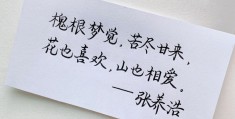 槐根梦觉，苦尽甘来，
花也喜欢，山也相爱。
——张养浩